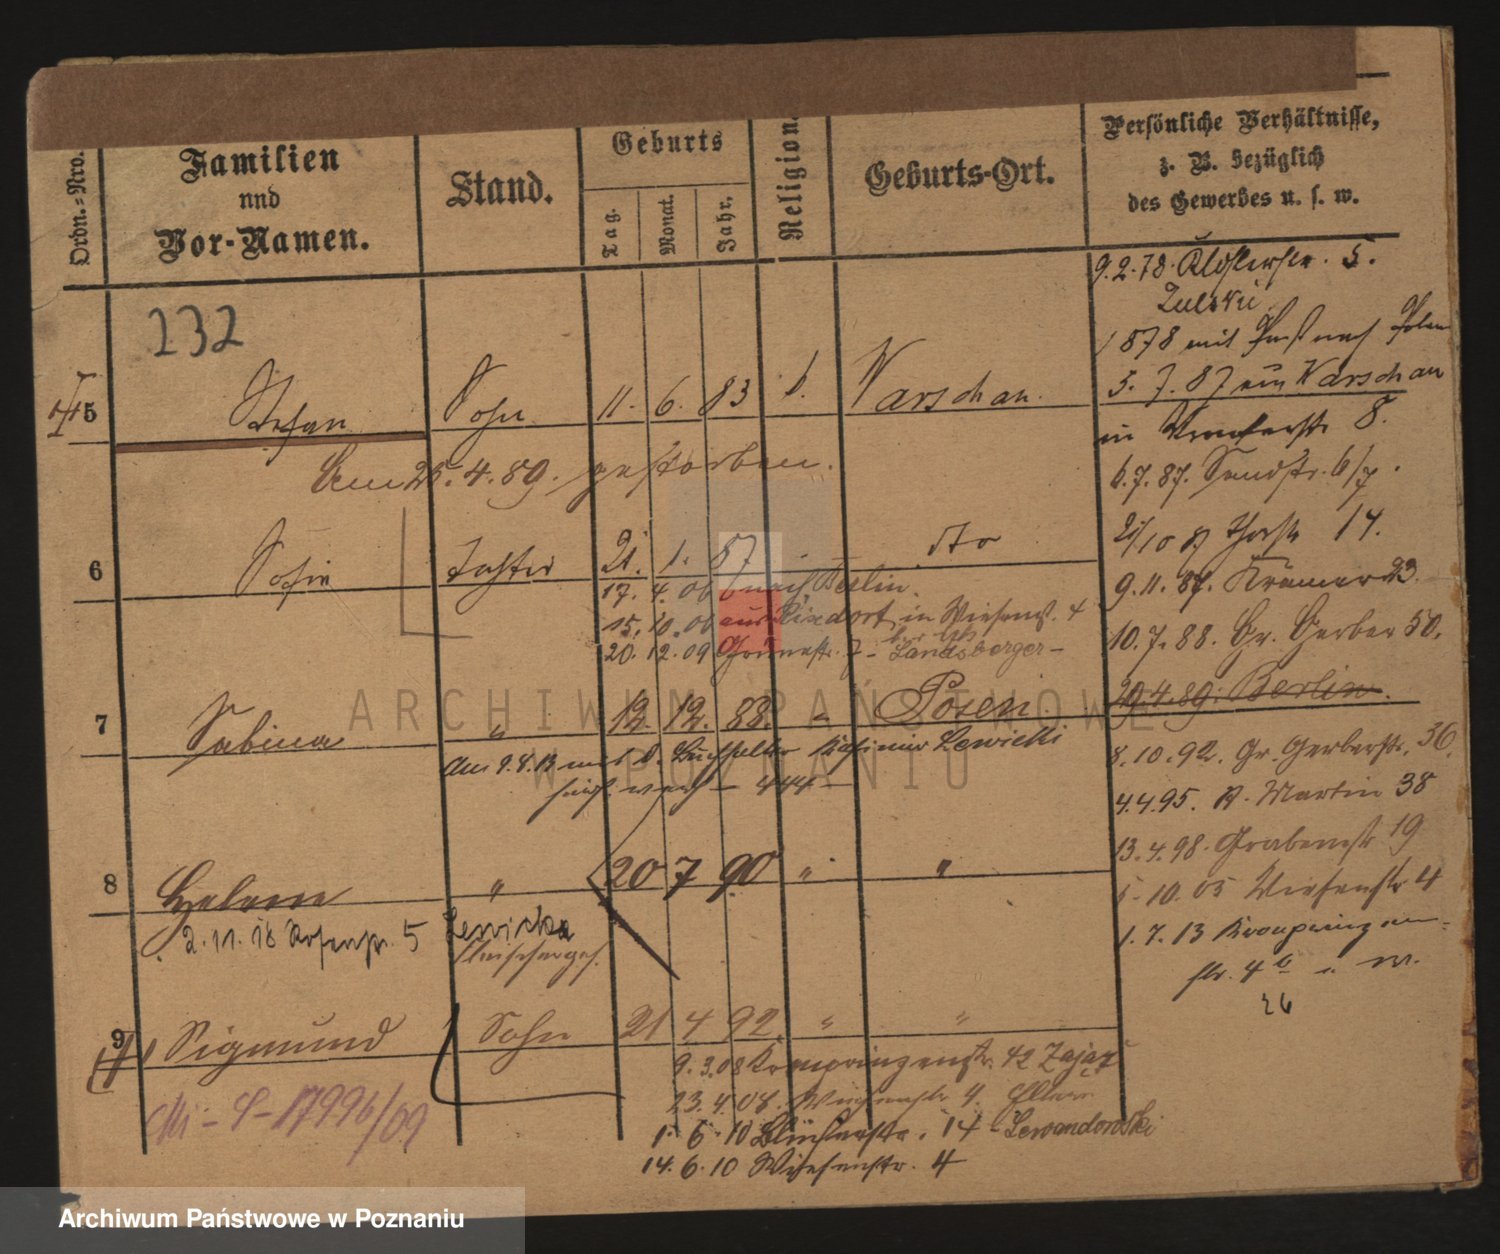 Ordn.-Nro.
Familien
und
Vor-Namen.
Stand.
Geburts
Tag.
Monat.
Jahr.
Religion.
Geburts-Ort.
Persönliche Verhältnisse,
z. B. bezüglich
des Gewerbes u. s. w.
232
5 Stefan Sohn 11. 6. 83 Warschau.
Am 25. 4. 89. gestorben.
6 Sofie Tochter 21. 1. 87 - - dto
17. 4. 06 nach Berlin.
15. 10. 06 aus Rixdorf in Wiesenstr. 4
20. 12. 09 Grünestr. 7 - Landsberger -
7 Sabina " 12. 12. 88. " Posen
Am 9. 4. 13 mit d. Kasimir Lewicki
- 444 -
8 Helene " 20 7 90 " "
2. 11. 18 5 Lewicka
Fleischerges.
9 Sigmund Sohn 21 4 92. " "
9. 3. 08 Kronprinzenstr. 42 Zając
23. 4. 08. Wiesenstr. 4. Eltern
1. 6. 10 14 - Lewandowski
14. 6. 10 Wiesenstr. 4
17996/09
9. 2. 78. Klosterstr. 5.
1878 mit nach Polen
3. 7. 87 aus Warschau
in 8.
6. 7. 87. Sandstr. 6/7.
21/10 87 14.
9. 11. 87. Krämer 23.
10. 7. 88. Gr. Gerber 50.
29. 4. 89. Berlin.
8. 10. 92. Gr. Gerberstr. 36.
4. 4. 95. St. Martin 38
13. 4. 98. Grabenstr 19
5. 10. 05 Wiesenstr 4
1. 7. 13 Kronprinzen-
str. 4 b
26
ARCHIWUM PAŃSTWOWE
W POZNANIU
Archiwum Państwowe w Poznaniu